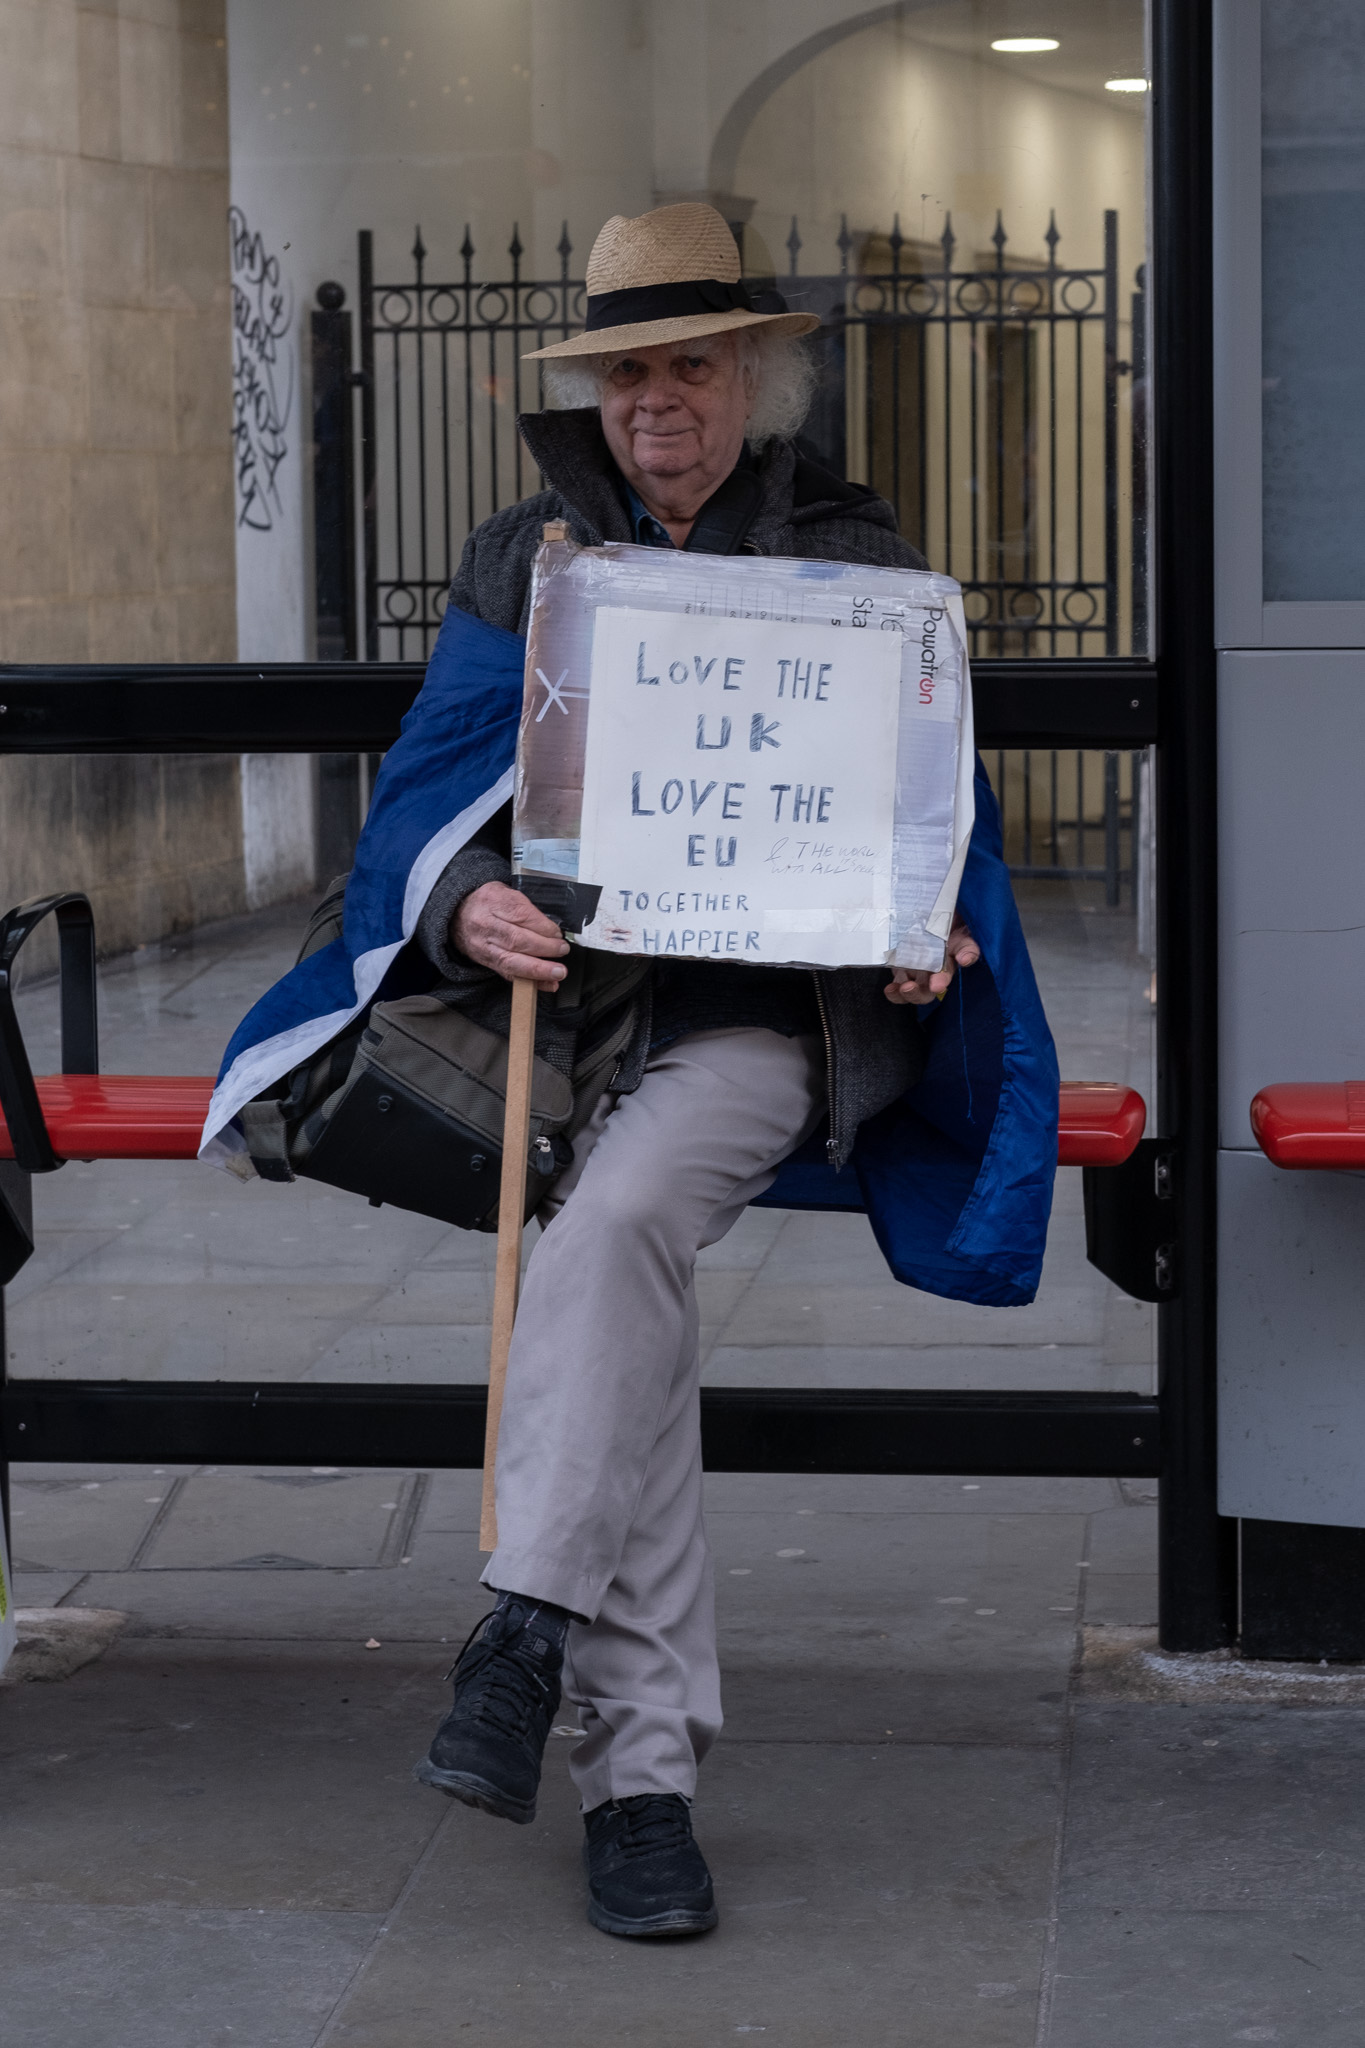 LOVE THE
UK
LOVE THE
EU
& THE WORLD
WITH ALL
TOGETHER
= HAPPIER
Powatron
16
Sta
5